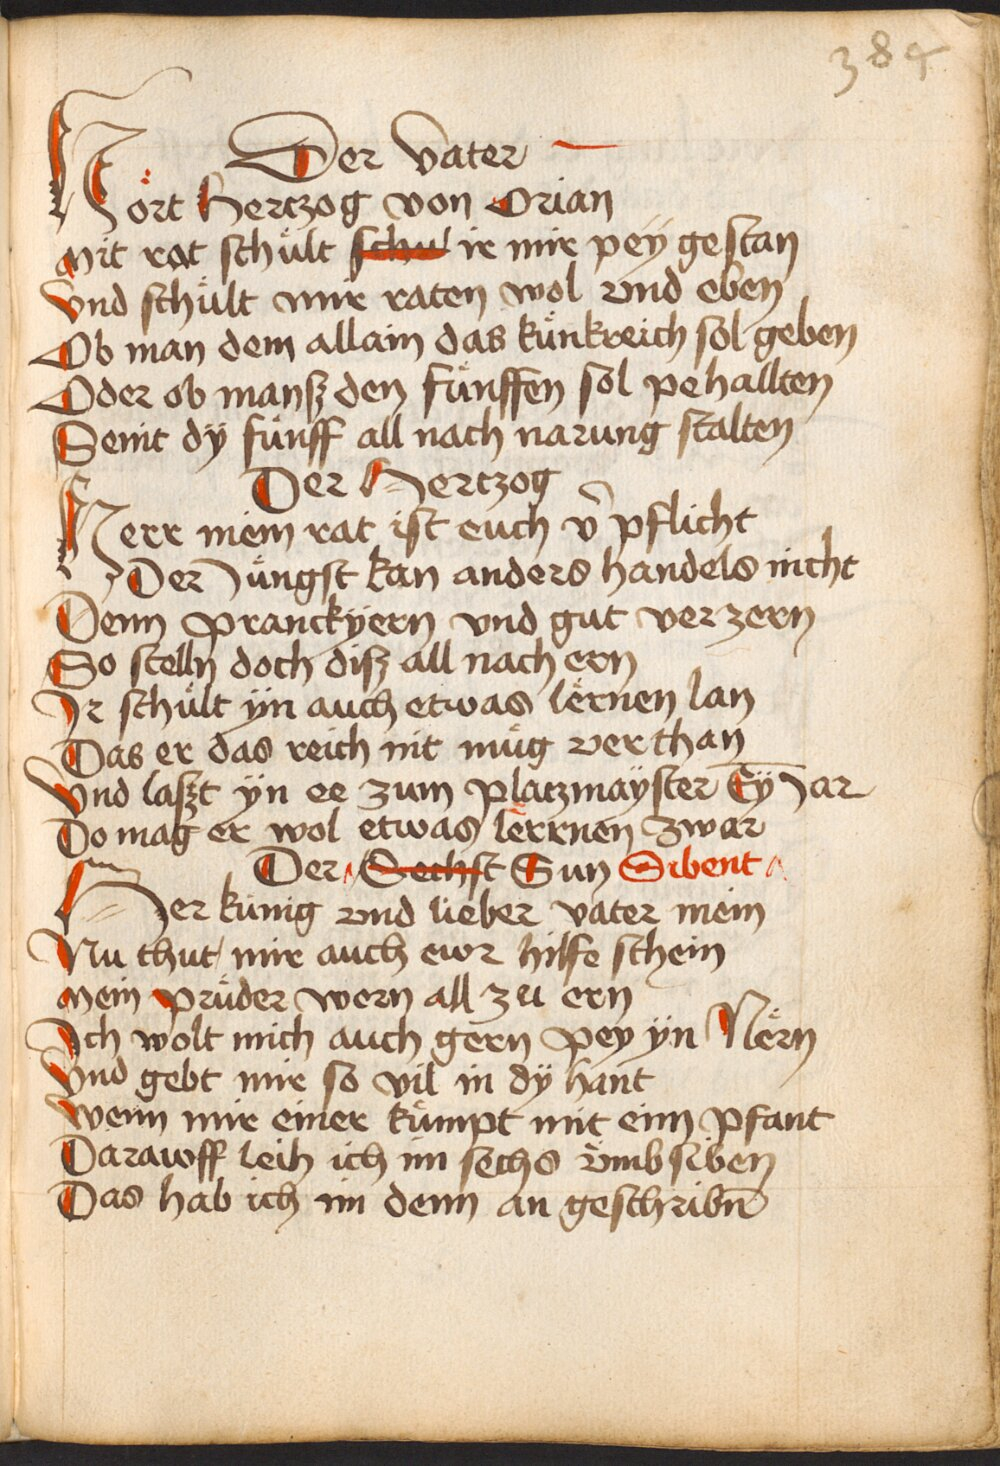 384
Der vater
Hört Hertzog von Orian
Mit rat schült schul ir mir pey gestan
Vnd schült mir raten wol vnd eben
Ob man dem allain das künkreich sol geben
Oder ob manß den fünffen sol pehallten
Seint dÿ fünff all nach narung stalten
Der Hertzog
Herr mein rat ist euch v̄ pflicht
Der Jüngst kan anders handels nicht
Denn pranckÿern vnd gut verzern
So stelln doch diß all nach ern
Ir schült ÿn auch etwas lërnen lan
Das er das reich nit müg verthan
Vnd laßt ÿn ee zum platzmaÿster Eÿ Jar
Do mag er wol etwas lerrnen zwar
Der Sechst Sun Sibent
Her künig vnd lieber vater mein
Nu thut mir auch ewr hilfe schein
Mein prüder wern all zu ern
Ich wolt mich auch gern pey ÿn Nërn
Vnd gebt mir so vil in dÿ hant
Wenn mir einer kümpt mit einn pfant
Darawff leih ich im sechs vmb siben
Das hab ich im denn an geschribn̄